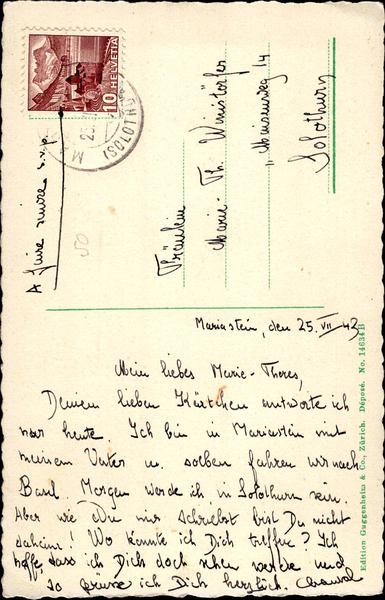 Mariastein, den 25. VII 43
Mein liebes Marie-Theres,
Deinem lieben Kärtchen antworte ich
nur heute. Ich bin in Mariastein mit
meinem Vater u. soeben fahren wir nach
Basel. Morgen werde ich in Solothurn sein.
Aber wie Du mir schriebst bist Du nicht
daheim! Wo könnte ich Dich treffen? Ich
hoffe, dass ich Dich doch sehen werde und
so grüsse ich Dich herzlich.
Fräulein
Marie-Th. Winistörfer
Meisenweg 14
Solothurn
A faire suivre s.v.p.
HELVETIA
10
(SOLOTHURN)
50
Edition Guggenheim & Co., Zürich. Déposé. No. 14634 B